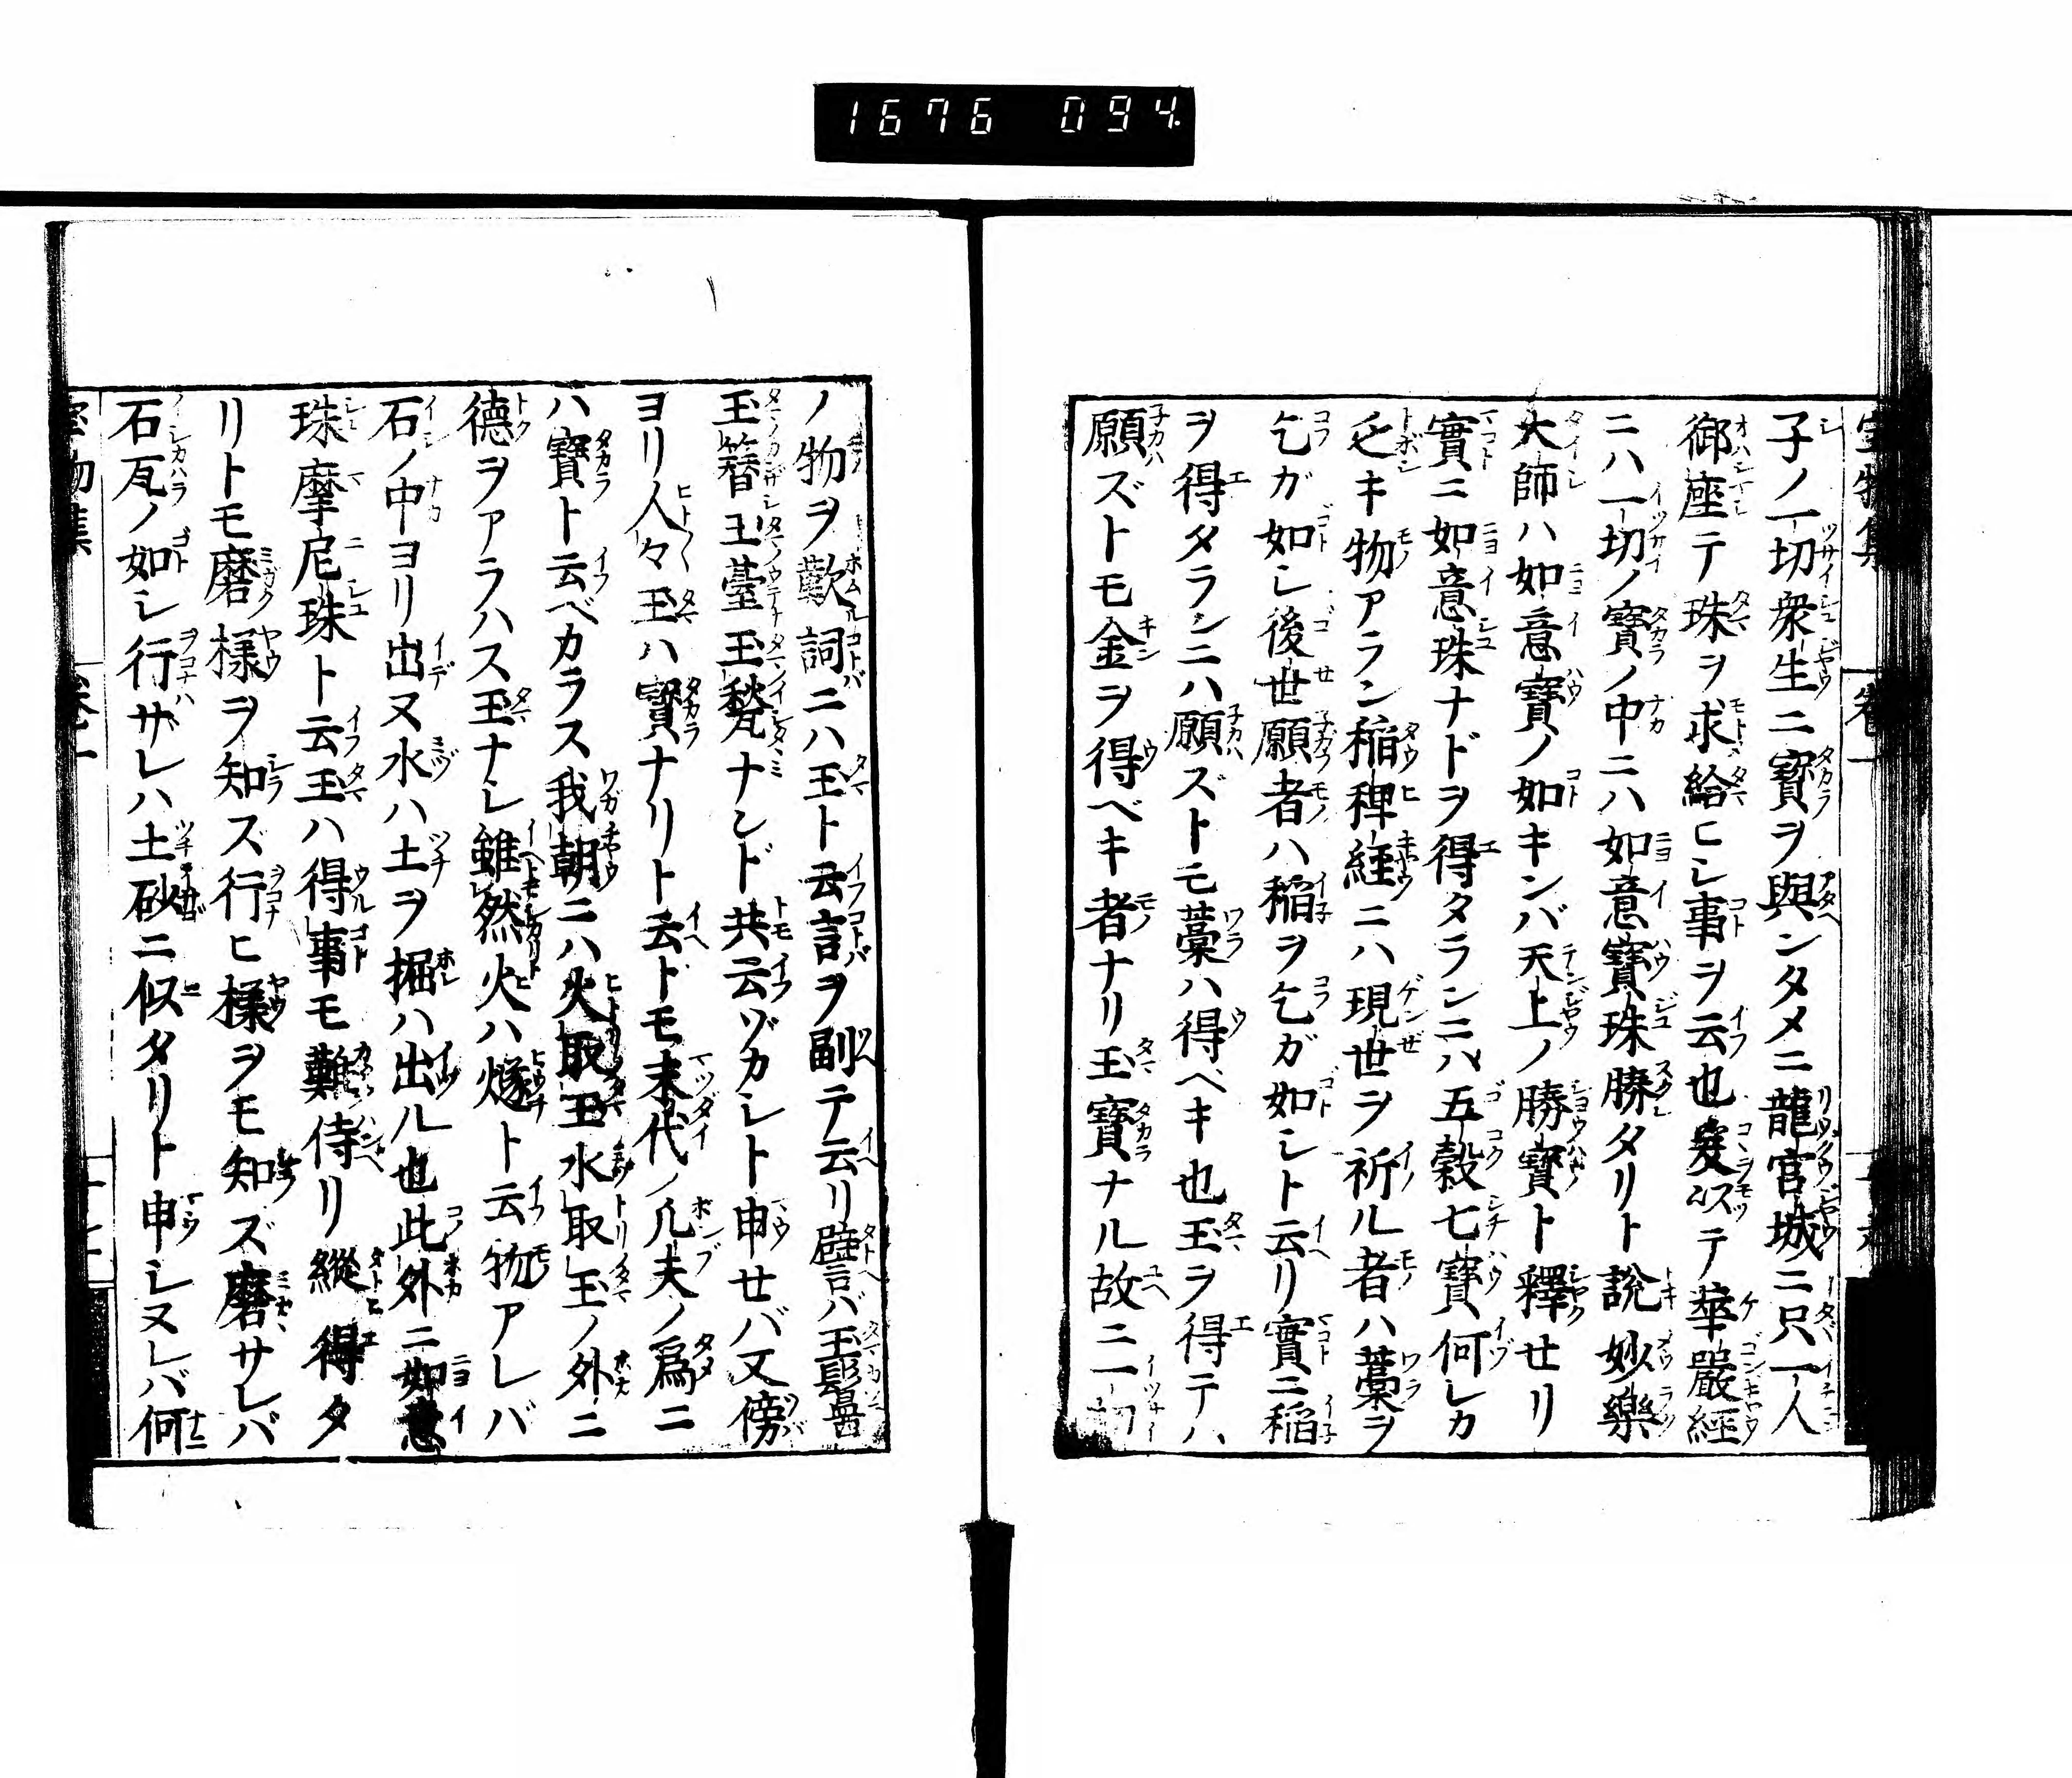 1676 094.
子ノ一切衆生ニ寳ヲ與ンタメニ龍宮城ニ只一人
御座テ珠ヲ求給ヒシ事ヲ云也爰以テ華嚴經
ニハ一切ノ寳ノ中ニハ如意寳珠勝タリト說妙樂
大師ハ如意寳ノ如キンバ天上ノ勝寳ト釋せリ
實ニ如意珠ナドヲ得タランニハ五穀七寳何レカ
乏キ物アラン稲稗経ニハ現世ヲ祈ル者ハ藁ヲ
乞ガ如シ後世願者ハ稲ヲ乞ガ如シト云リ實ニ稲
ヲ得タランニハ願ズトモ藁ハ得ベキ也玉ヲ得テハ
願ズトモ金ヲ得ベキ者ナリ玉寳ナル故ニ一切
ノ物ヲ歎詞ニハ玉ト云言ヲ副テ云リ譬バ玉鬘
玉簪玉臺玉甃ナンド共云ヅカシト申せバ又傍
ヨリ人々玉ハ寳ナリト云ドモ末代ノ凡夫ノ爲ニ
ハ寳ト云ベカラス我朝ニハ火取玉水取玉ノ外ニ
德ヲアラハス玉ナシ雖然火ハ燧ト云物アレバ
石ノ中ヨリ出ヌ水ハ土ヲ掘ハ出ル也此外ニ如意
珠摩尼珠ト云玉ハ得事モ難侍リ縱得タ
リトモ磨樣ヲ知ズ行ヒ樣ヲモ知ズ磨サレバ
石瓦ノ如シ行サレハ土砂ニ似タリト申シヌレバ何